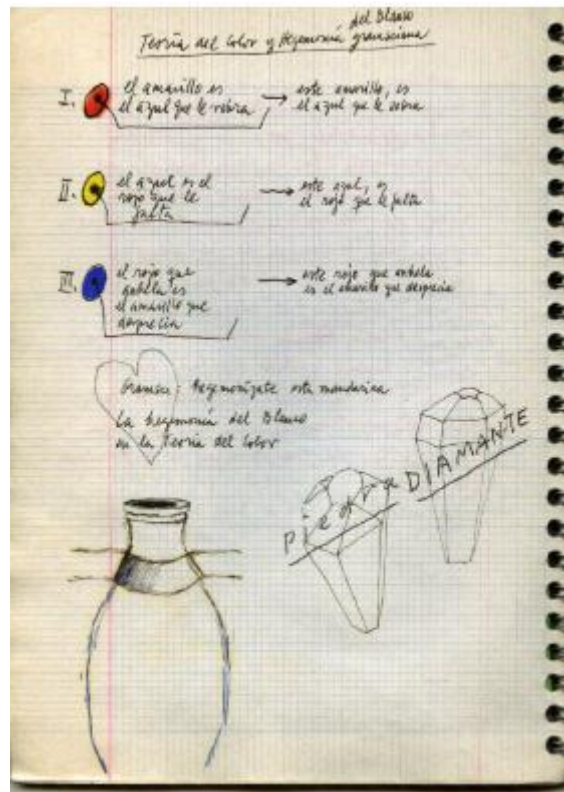 del Blanco
Teoría del Color y Hegemonía gramsciana
I. el amarillo es
el azul que le sobra
→ este amarillo, es
el azul que le sobra
II. el azul es el
rojo que le
falta
→ este azul, es
el rojo que le falta
III. el rojo que
anhela es
el amarillo que
desprecia
→ este rojo que anhela
es el amarillo que desprecia
Gramsci: Hegemonízate esta mandarina
La hegemonía del Blanco
en la Teoría del Color
Piedra DIAMANTE